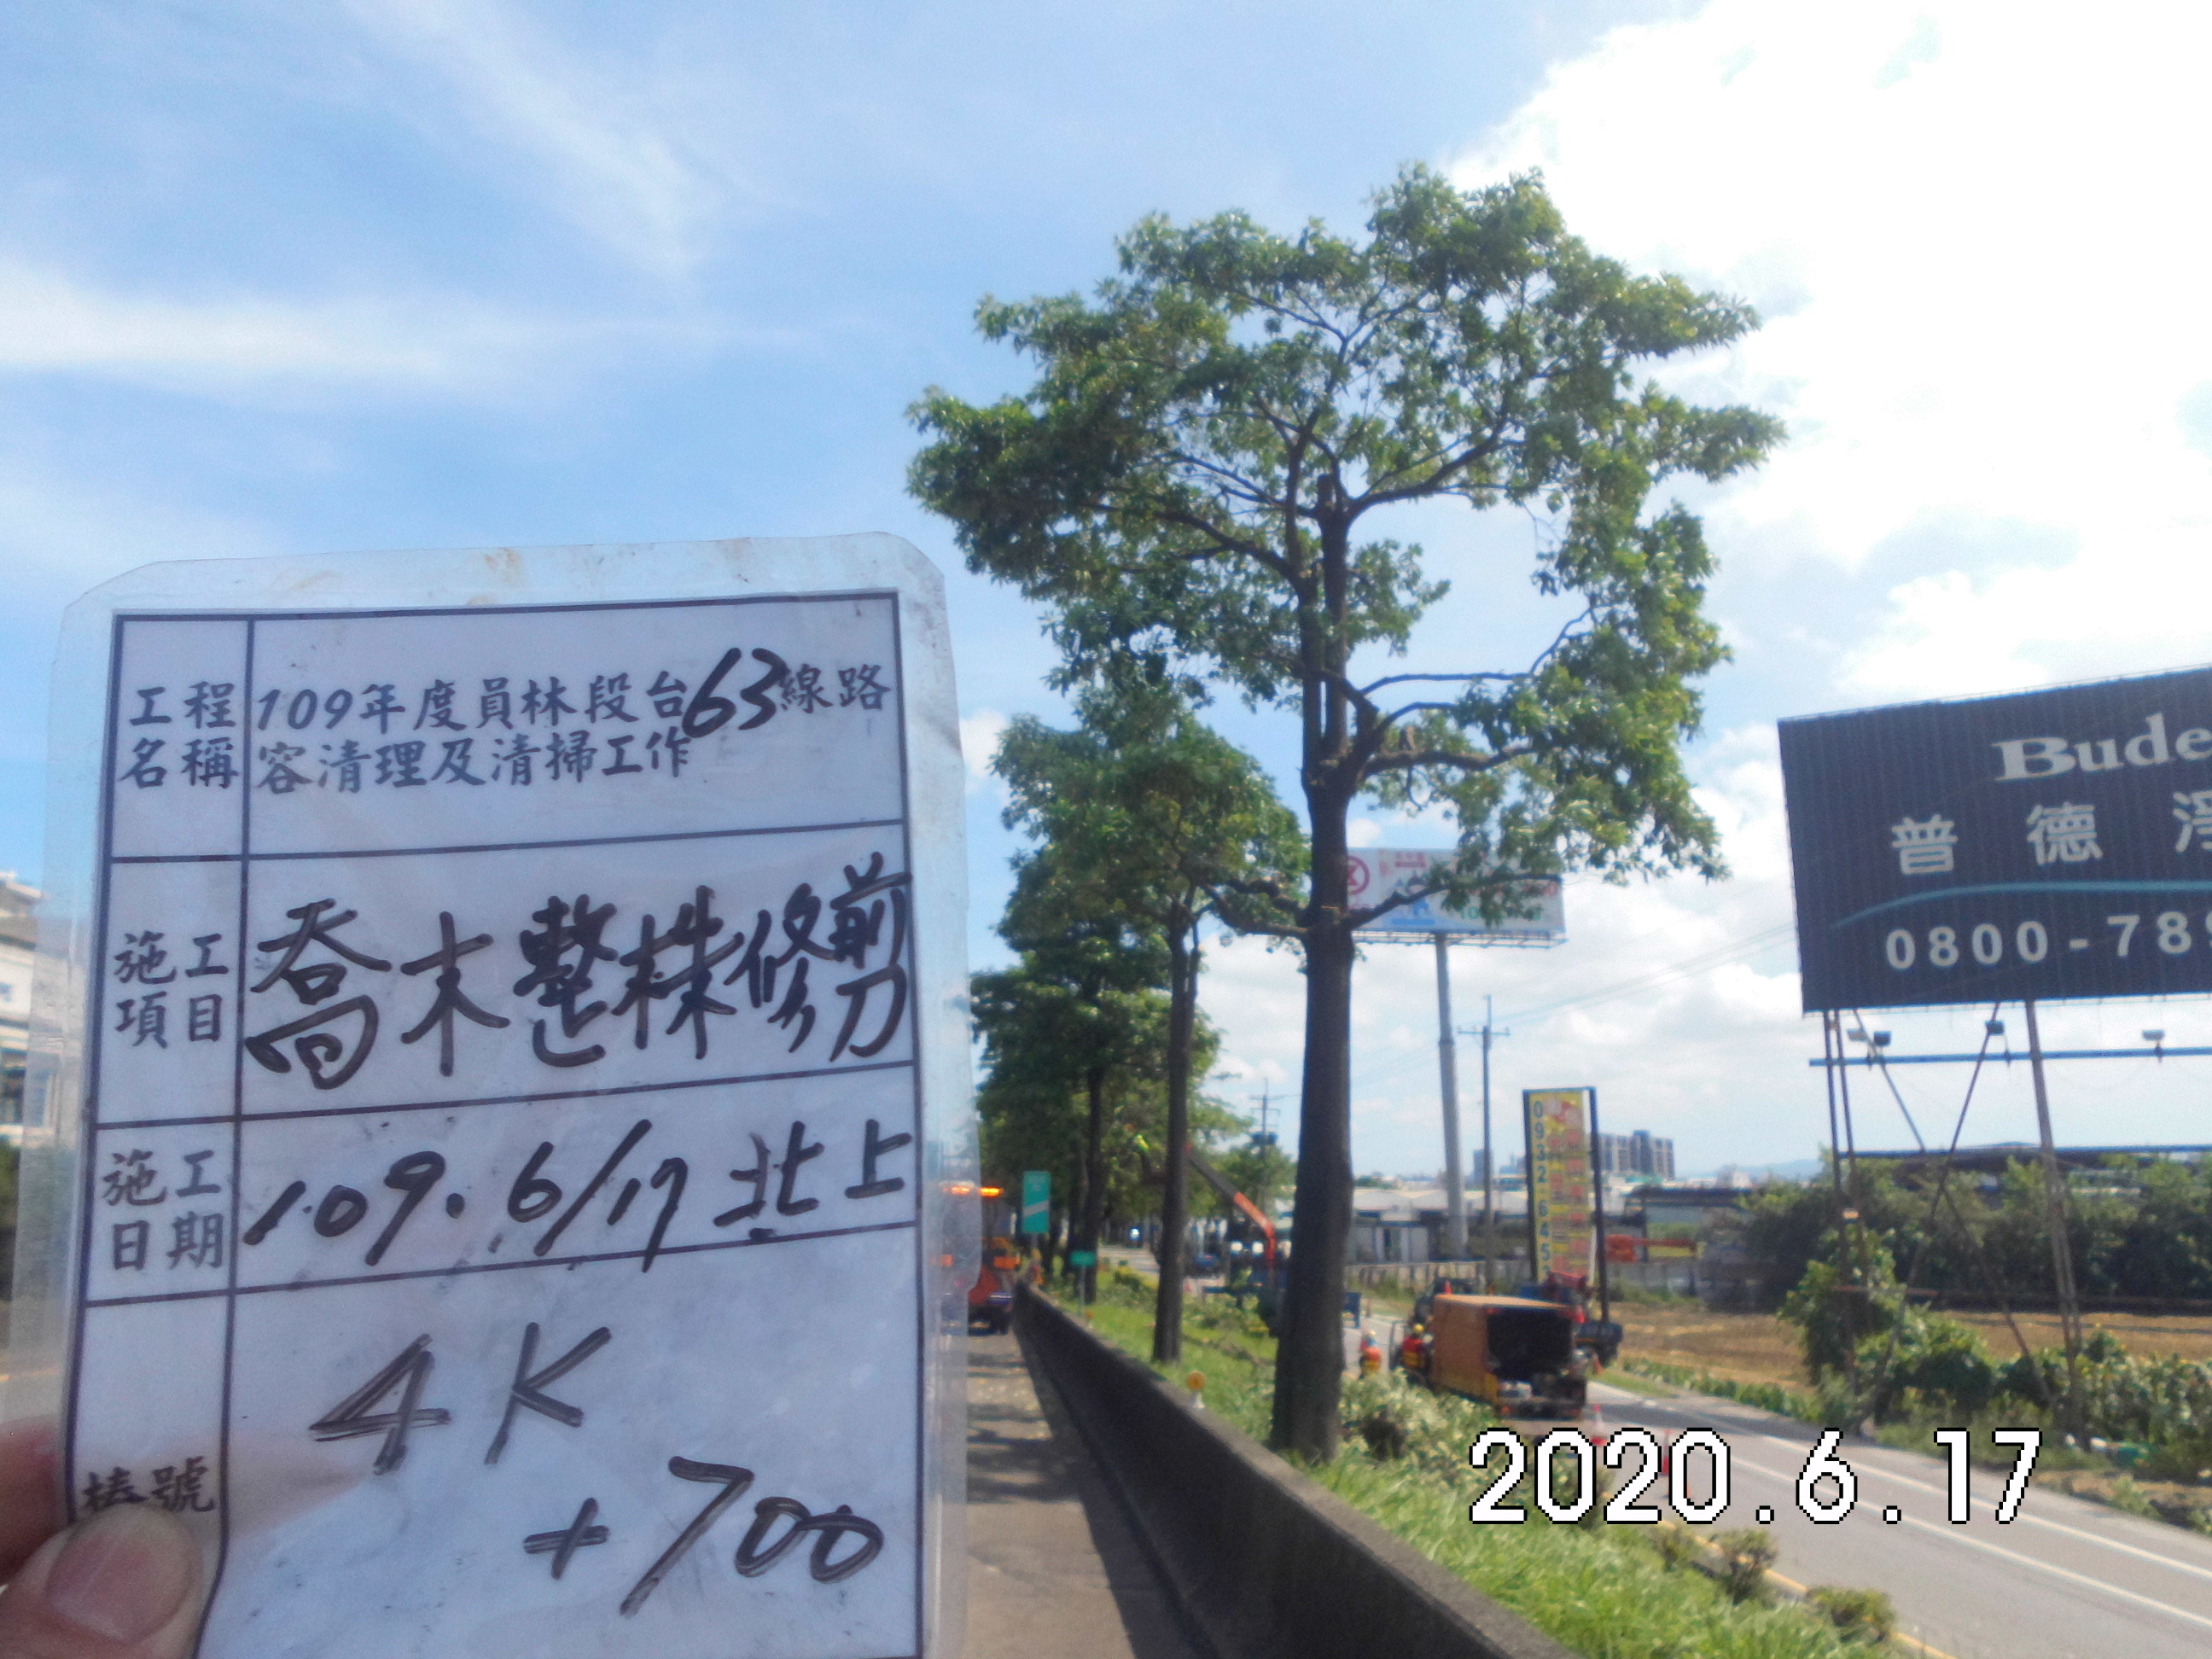 工程名稱
109年度員林段台63線路
容清理及清掃工作
施工項目
喬木整株修剪
施工日期
109.6/17 北上
樁號
4K
+700
Bude
普德淨
0800-78
0932-645
2020.6.17